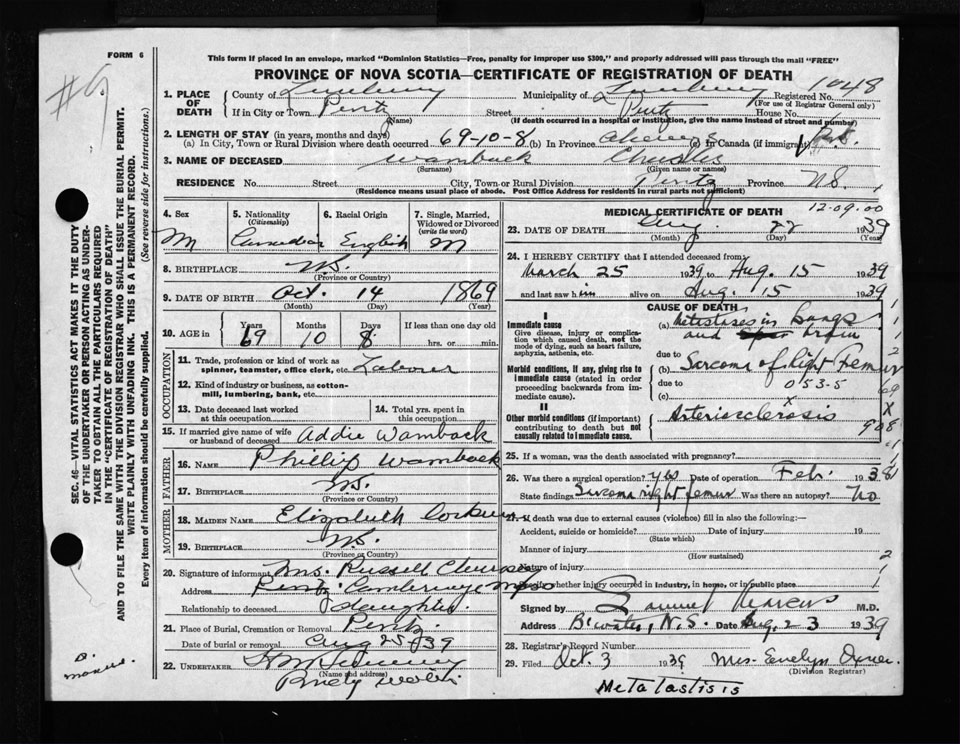 FORM 6
This form if placed in an envelope, marked "Dominion Statistics—Free, penalty for improper use $300," and properly addressed will pass through the mail "FREE"
PROVINCE OF NOVA SCOTIA—CERTIFICATE OF REGISTRATION OF DEATH
#6
SEC. 46—VITAL STATISTICS ACT MAKES IT THE DUTY
OF THE UNDERTAKER OR PERSON ACTING AS UNDER-
TAKER TO OBTAIN ALL THE PARTICULARS REQUIRED
IN THE "CERTIFICATE OF REGISTRATION OF DEATH"
AND TO FILE THE SAME WITH THE DIVISION REGISTRAR WHO SHALL ISSUE THE BURIAL PERMIT.
WRITE PLAINLY WITH UNFADING INK. THIS IS A PERMANENT RECORD.
Every item of information should be carefully supplied. (See reverse side for instructions.)
1. PLACE OF DEATH County of Lunenburg Municipality of Lunenburg Registered No. 1048
(For use of Registrar General only)
If in City or Town Pentz Street Pentz House No.
(Name) (If death occurred in a hospital or institution, give the name instead of street and number)
2. LENGTH OF STAY (in years, months and days)
(a) In City, Town or Rural Division where death occurred 69-10-8 (b) In Province always (c) in Canada (if immigrant)
3. NAME OF DECEASED Wamback Charles
(Surname) (Given name or names)
RESIDENCE No. Street City, Town or Rural Division Pentz Province N.S.
(Residence means usual place of abode. Post Office Address for residents in rural parts not sufficient)
4. Sex M
5. Nationality (Citizenship) Canadian
6. Racial Origin English
7. Single, Married, Widowed or Divorced (write the word) M
8. BIRTHPLACE N.S.
(Province or Country)
9. DATE OF BIRTH Oct. 14 1869
(Month) (Day) (Year)
10. AGE in Years 69 Months 10 Days 8 If less than one day old
hrs. or min.
OCCUPATION
11. Trade, profession or kind of work as
spinner, teamster, office clerk, etc. Laborer
12. Kind of industry or business, as cotton-
mill, lumbering, bank, etc.
13. Date deceased last worked
at this occupation
14. Total yrs. spent in
this occupation
15. If married give name of wife
or husband of deceased Addie Wamback
FATHER
16. NAME Phillip Wamback
17. BIRTHPLACE N.S.
MOTHER
18. MAIDEN NAME Elizabeth Corkum
19. BIRTHPLACE N.S.
(Province or Country)
20. Signature of informant Mrs. Russell
Address Pentz
Relationship to deceased daughter.
21. Place of Burial, Cremation or Removal Pentz.
Date of burial or removal Aug 25-39
22. UNDERTAKER
(Name and address)
MEDICAL CERTIFICATE OF DEATH 12-09-00
23. DATE OF DEATH Aug. 22 1939
(Month) (Day) (Year)
24. I HEREBY CERTIFY that I attended deceased from
March 25 1939 to Aug. 15 1939
and last saw him alive on Aug. 15 1939
CAUSE OF DEATH
I
Immediate cause
Give disease, injury or complica-
tion which caused death, not the
mode of dying, such as heart failure,
asphyxia, asthenia, etc.
Morbid conditions, if any, giving rise to
immediate cause (stated in order
proceeding backwards from im-
mediate cause).
II
Other morbid conditions (if important)
contributing to death but not
causally related to immediate cause.
(a) Metastases in Lungs
and
due to
(b) Sarcoma of right Femur
due to 053-5
(c)
Arteriosclerosis
908
25. If a woman, was the death associated with pregnancy?
26. Was there a surgical operation? yes Date of operation Feb. 1938
State findings Sarcoma right femur Was there an autopsy? No
27. If death was due to external causes (violence) fill in also the following:—
Accident, suicide or homicide? Date of injury 19
(State which)
Manner of injury
(How sustained)
Specify whether injury occurred in industry, in home, or in public place
Signed by Samuel Marcus M.D.
Address B'water, N.S. Date Aug. 23 1939
28. Registrar's Record Number
29. Filed Oct. 3 1939 Mrs. Evelyn
(Division Registrar)
Metatastisis